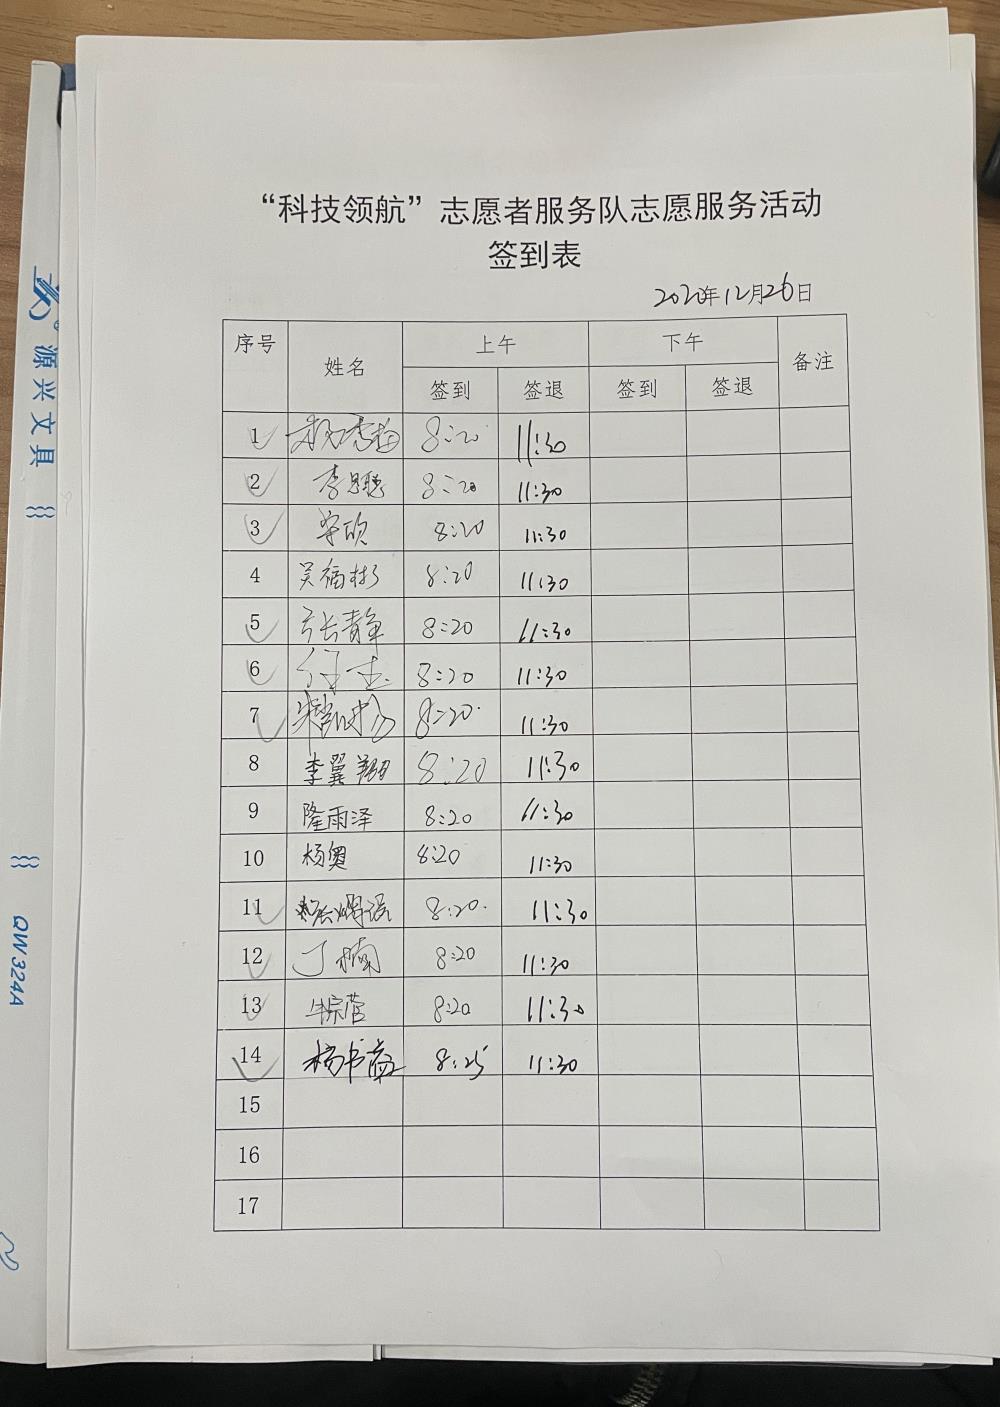 “科技领航”志愿者服务队志愿服务活动
签到表
2020年12月26日
序号 姓名 上午 下午 备注
签到 签退 签到 签退
1 8:20 11:30
2 李思聪 8:20 11:30
3 宇欣 8:20 11:30
4 吴福彬 8:20 11:30
5 张青争 8:20 11:30
6 8:20 11:30
7 8:20 11:30
8 李翼翔 8:20 11:30
9 隆雨泽 8:20 11:30
10 杨奥 8:20 11:30
11 8:20 11:30
12 丁楠 8:20 11:30
13 牛综营 8:20 11:30
14 杨书 8:25 11:30
15
16
17
源兴文具
QW324A